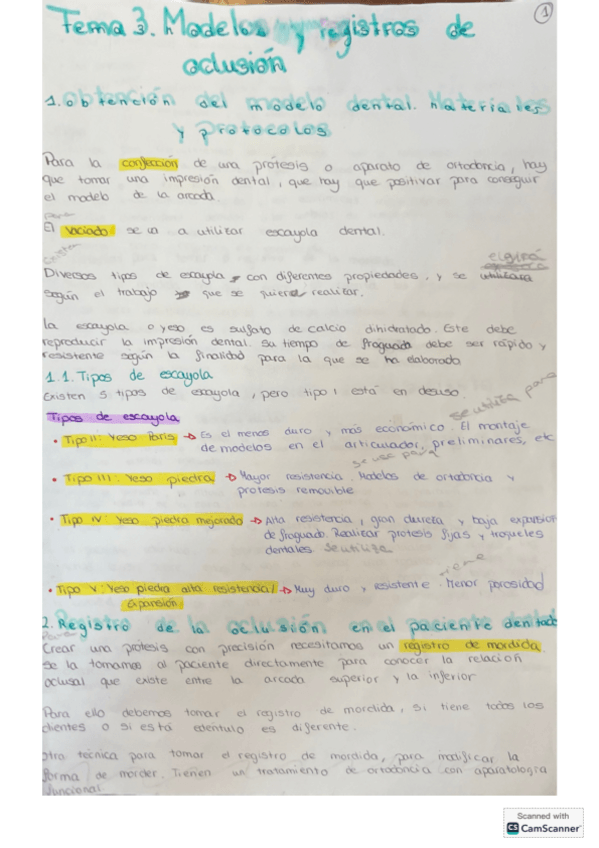 1
Tema 3. Modelos y registros de
oclusión
1. obtención del modelo dental. Materiales
y protocolos
Para la confección de una prótesis o aparato de ortodoncia, hay
que tomar una impresión dental, que hay que positivar para conseguir
el modelo de la arcada.
para
El vaciado se va a utilizar escayola dental.
existen
Diversos tipos de escayola con diferentes propiedades. y se utilizara
según el trabajo que se quiera realizar.
La escayola o yeso es sulfato de calcio dihidratado. Este debe
reproducir la impresión dental. Su tiempo de fraguado debe ser rápido y
resistente según la finalidad para la que se ha elaborado.
1.1. Tipos de escayola
Existen 5 tipos de escayola, pero tipo I está en desuso.
se utilita para
Tipos de escayola
• Tipo II: Yeso París → Es el menos duro y más económico. El montaje
de modelos en el articulador, preliminares, etc
se usa para
• Tipo III: Yeso piedra → Mayor resistencia. Modelos de ortodoncia y
protesis removible
• Tipo IV: Yeso piedra mejorado → Alta resistencia, gran dureta y baja expansion
de fraguado. Realizar protesis fijas y troqueles
dentales se utilize
• Tipo V: Yeso piedra alta resistencia/ → Muy duro y resistente. Menor porosidad
expansión.
2. Registro de la oclusión en el paciente dentado
Para
Crear una protesis con precisión necesitamos un registro de mordida.
se la tomamos al paciente directamente para conocer la relacion
oclusal que existe entre la arcada superior y la inferior
Para ello debemos tomar el registro de mordida, si tiene todos los
dientes o si está edentulo es diferente.
otra técnica para tomar el registro de mordida, para modificar la
forma de morder. Tienen un tratamiento de ortodoncia con aparatologia
funcional
Scanned with
CS CamScanner